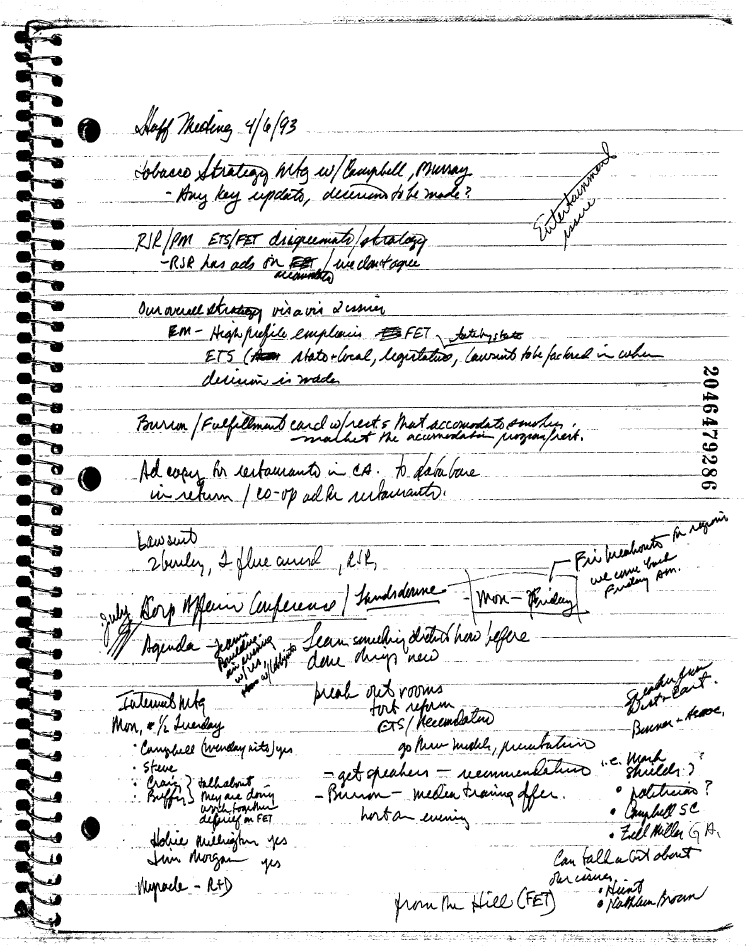 Staff Meeting 4/6/93
Tobacco Strategy Mtg w/ Campbell, Murray
- Any key update, decisions to be made?
Entertainment
issue
RJR/PM ETS/FET disagreements/strategy
- RJR has ads on FET / we don't agree
Our overall strategy vis a vis 2 issues
EM - High profile emphasis FET state by state
ETS ( state + local, legislative, lawsuits to be factored in when
decision is made
2046479286
Burson / Fulfillment card w/ rest's that accomodate smokers.
market the accomodation program/rest.
Ad copy for restaurants in CA. to database
in return / co-op ad for restaurants.
Lawsuit
2 burley, 1 flue cured, RJR,
Fri breakouts for regions
we come back
Friday am.
July Corp Affairs Conference / Landsdowne - Mon - Friday
Agenda - team
building
w/ us
Learn something didn't know before
done things new
Internal Mtg
Mon, 1/2 Tuesday
· Campbell yes
· Steve
· Craig
· Buffy
talk about
they are doing
work together
FET
Hollie Millington yes
Jim Morgan yes
Myracle - R+D
break out rooms
tort reform
ETS / Accomodation
go thru models, presentation
- get speakers - recommendations
- Burson - media training offer.
host an evening
from the Hill (FET)
West + East.
i.e. Mark
Shields ?
· politician ?
· Campbell SC
· Zell Miller GA,
Can talk a bit about
our issues
· Hunt
· Kathleen Brown